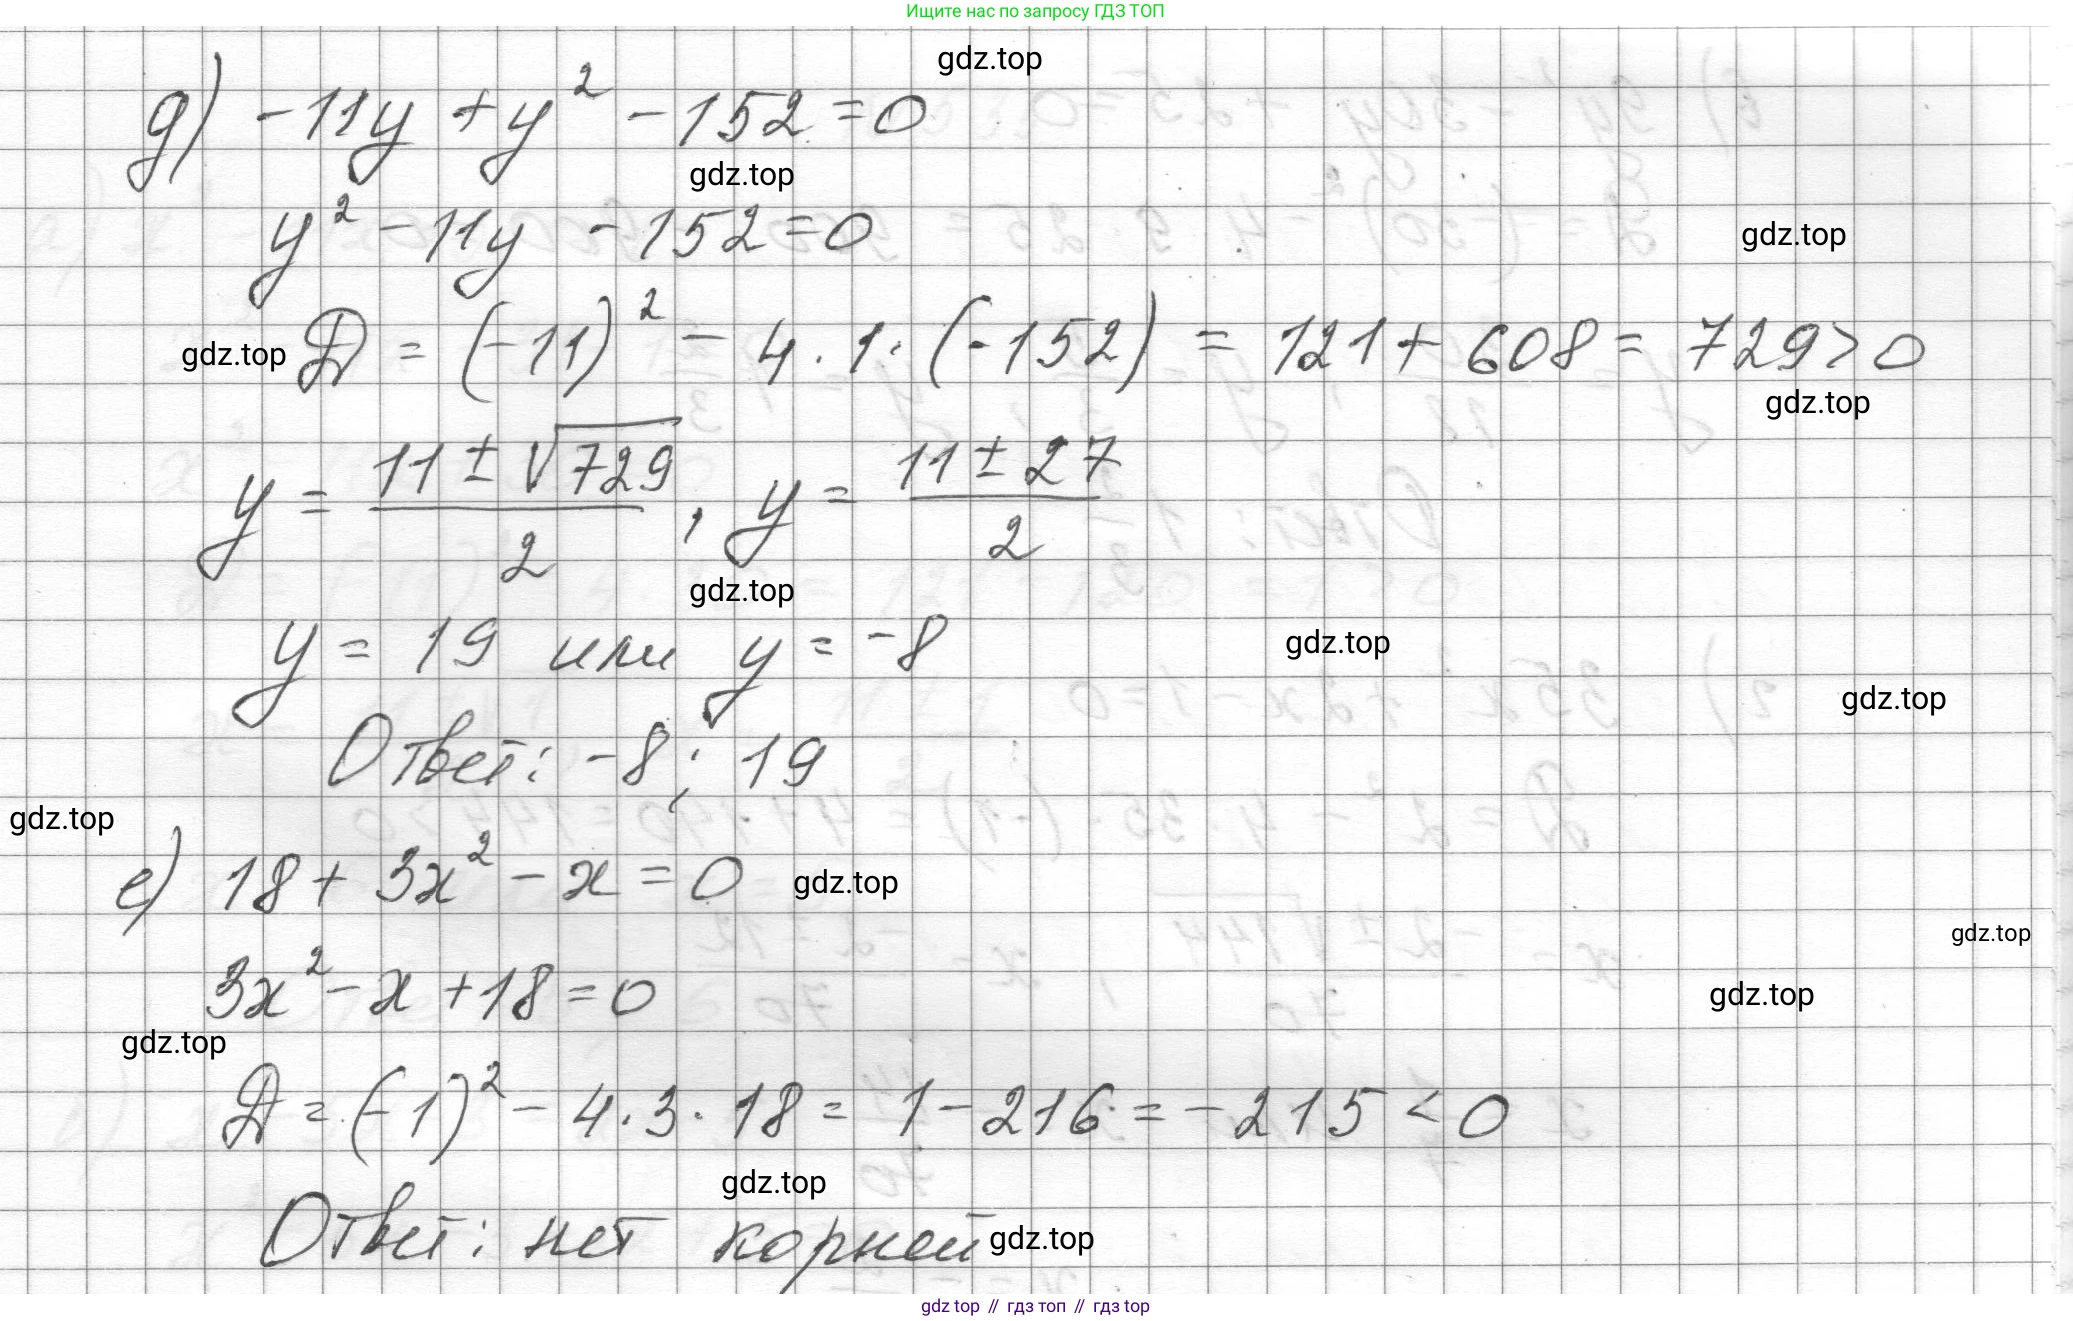 Ищите нас по запросу ГДЗ ТОП
gdz.top
д) -11y + y² - 152 = 0
gdz.top
y² - 11y - 152 = 0
gdz.top
gdz.top
D = (-11)² - 4 · 1 · (-152) = 121 + 608 = 729 > 0
gdz.top
y = \frac{11 ± √729}{2}, y = \frac{11 ± 27}{2}
gdz.top
y = 19 или y = -8
gdz.top
gdz.top
Ответ: -8; 19
gdz.top
е) 18 + 3x² - x = 0
gdz.top
gdz.top
3x² - x + 18 = 0
gdz.top
gdz.top
D = (-1)² - 4 · 3 · 18 = 1 - 216 = -215 < 0
gdz.top
Ответ: нет корней
gdz.top
gdz top // гдз топ // гдз top